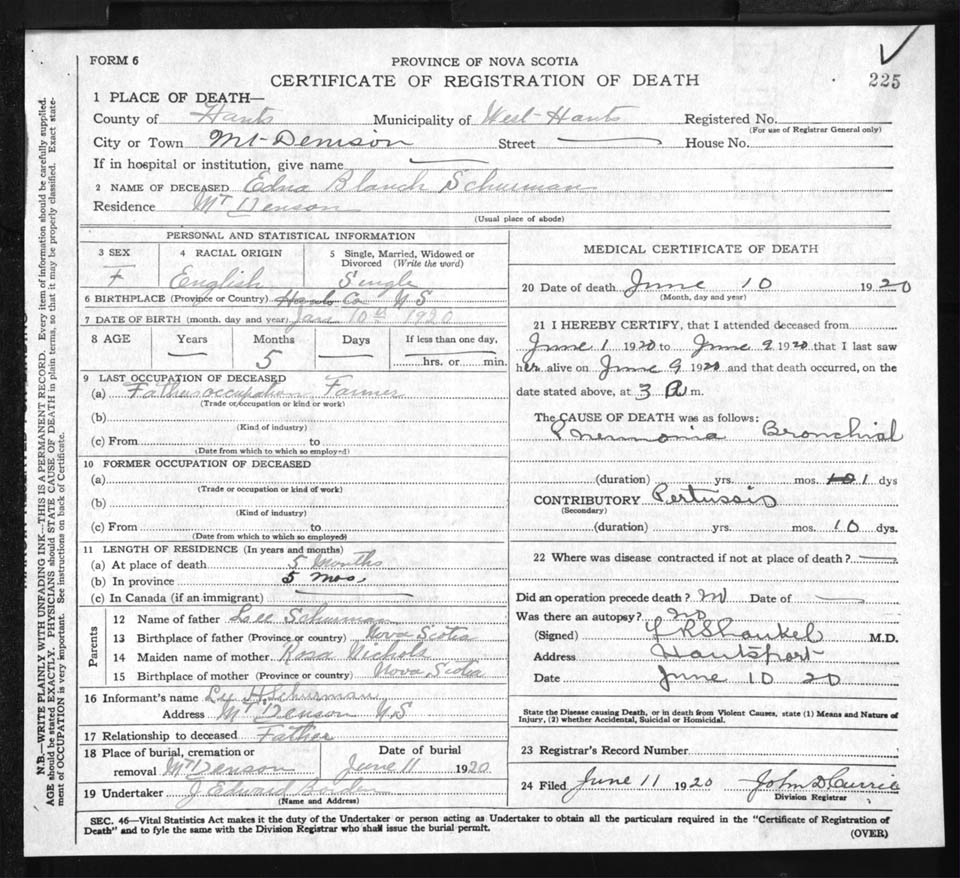 FORM 6
PROVINCE OF NOVA SCOTIA
CERTIFICATE OF REGISTRATION OF DEATH
225
1 PLACE OF DEATH—
County of Hants Municipality of West-Hants Registered No.
(For use of Registrar General only)
City or Town Mt-Denison Street House No.
If in hospital or institution, give name
2 NAME OF DECEASED Edna Blanch Schurman
Residence Mt Denson
(Usual place of abode)
PERSONAL AND STATISTICAL INFORMATION
3 SEX 4 RACIAL ORIGIN 5 Single, Married, Widowed or Divorced (Write the word)
F English Single
6 BIRTHPLACE (Province or Country) Hants Co N S
7 DATE OF BIRTH (month, day and year) Jan 10th 1920
8 AGE Years Months Days If less than one day,
5 hrs. or min.
9 LAST OCCUPATION OF DECEASED
(a) Fathers occupation Farmer
(Trade or occupation or kind or work)
(b)
(Kind of industry)
(c) From to
(Date from which to which so employed)
10 FORMER OCCUPATION OF DECEASED
(a)
(Trade or occupation or kind of work)
(b)
(Kind of industry)
(c) From to
(Date from which to which so employed)
11 LENGTH OF RESIDENCE (In years and months)
(a) At place of death 5 Months
(b) In province 5 mos.
(c) In Canada (if an immigrant)
Parents
12 Name of father Lee Schurman
13 Birthplace of father (Province or country) Nova Scotia
14 Maiden name of mother Rosa Nichols
15 Birthplace of mother (Province or country) Nova Scotia
16 Informant's name H. Schurman
Address Mt Denson N S
17 Relationship to deceased Father
18 Place of burial, cremation or removal Mt Denson Date of burial June 11 1920
19 Undertaker J Edward Borden
(Name and Address)
MEDICAL CERTIFICATE OF DEATH
20 Date of death June 10 1920
(Month, day and year)
21 I HEREBY CERTIFY, that I attended deceased from
June 1 1920 to June 9 1920 that I last saw
her alive on June 9 1920 and that death occurred, on the
date stated above, at 3 m.
The CAUSE OF DEATH was as follows:
Pneumonia Bronchial
(duration) yrs. mos. 1 dys
CONTRIBUTORY Pertussis
(Secondary)
(duration) yrs. mos. 10 dys.
22 Where was disease contracted if not at place of death?
Did an operation precede death? No Date of
Was there an autopsy? No
(Signed) Shankel M.D.
Address Hantsport
Date June 10 20
State the Disease causing Death, or in death from Violent Causes, state (1) Means and Nature of
Injury, (2) whether Accidental, Suicidal or Homicidal.
23 Registrar's Record Number
24 Filed June 11 1920 John D Currie
Division Registrar
SEC. 46—Vital Statistics Act makes it the duty of the Undertaker or person acting as Undertaker to obtain all the particulars required in the "Certificate of Registration of
Death" and to fyle the same with the Division Registrar who shall issue the burial permit.
(OVER)
N.B.—WRITE PLAINLY WITH UNFADING INK—THIS IS A PERMANENT RECORD. Every item of information should be carefully supplied.
AGE should be stated EXACTLY. PHYSICIANS should STATE CAUSE OF DEATH in plain terms, so that it may be properly classified. Exact state-
ment of OCCUPATION is very important. See instructions on back of Certificate.